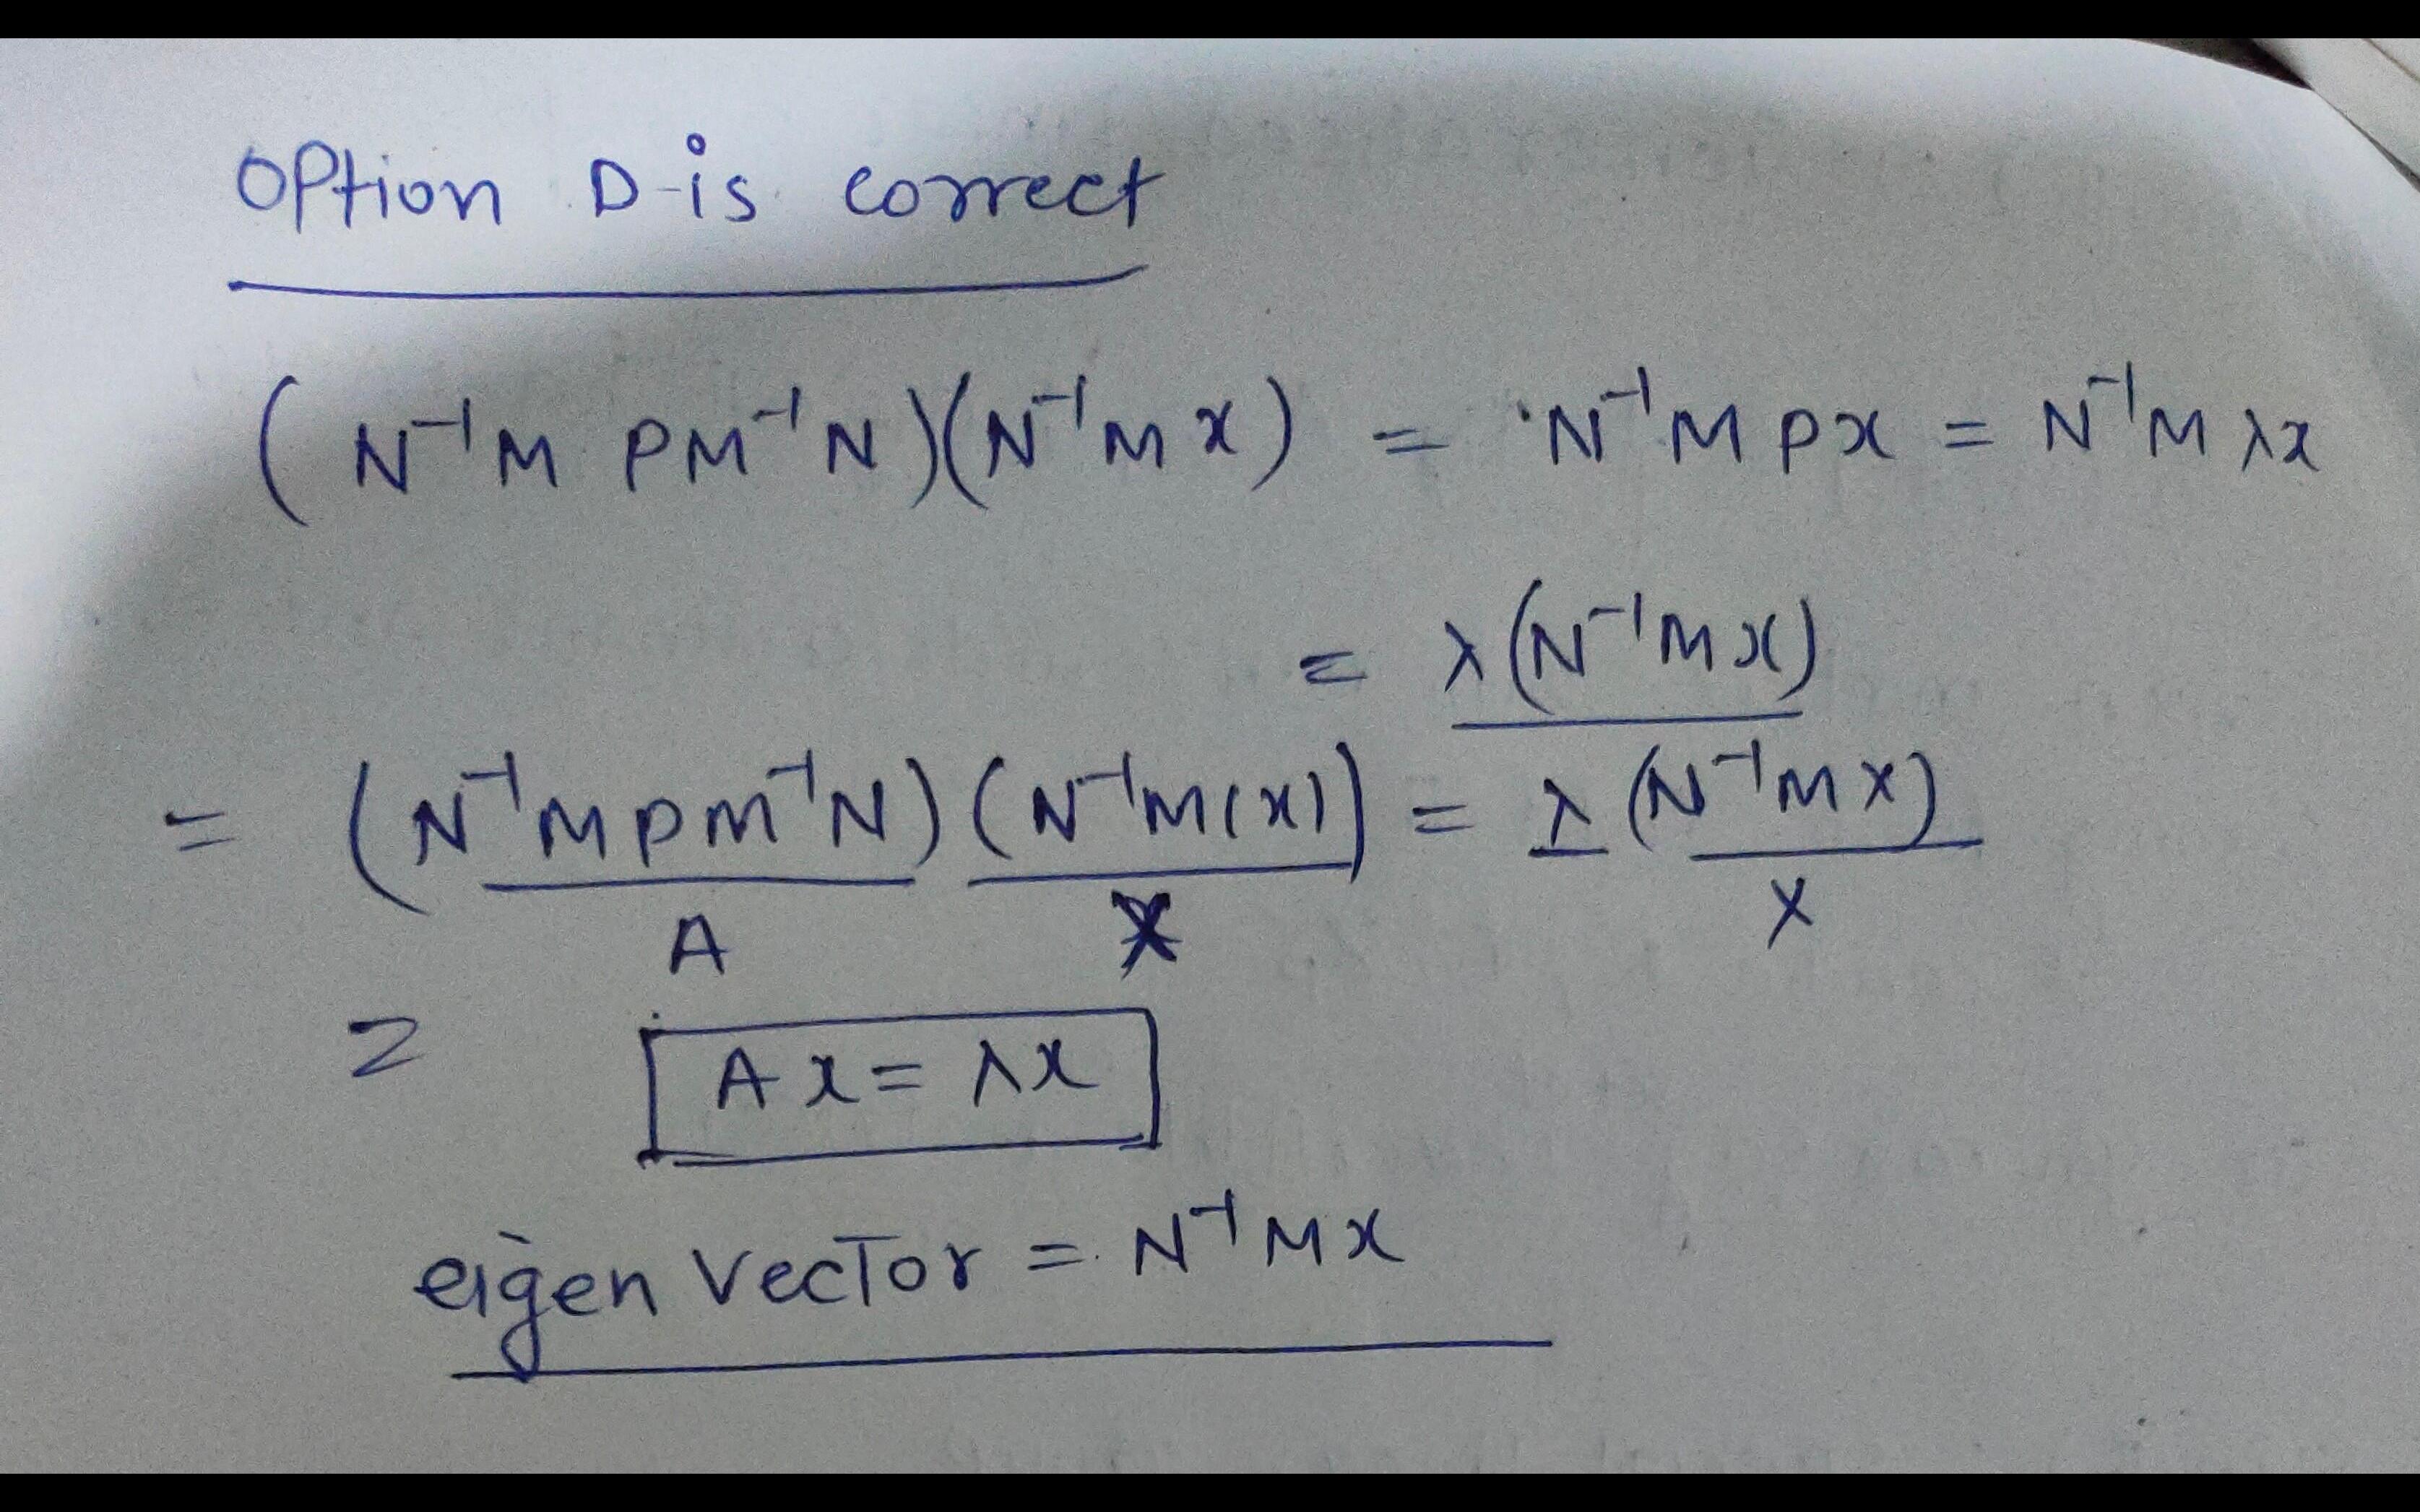 Option D is correct
(N⁻¹M PM⁻¹N)(N⁻¹M x) = N⁻¹M Px = N⁻¹M λx
= λ(N⁻¹Mx)
= (N⁻¹MPM⁻¹N) (N⁻¹M(x)) = λ (N⁻¹Mx)
A X X
= Ax = λx
eigen vector = N⁻¹Mx